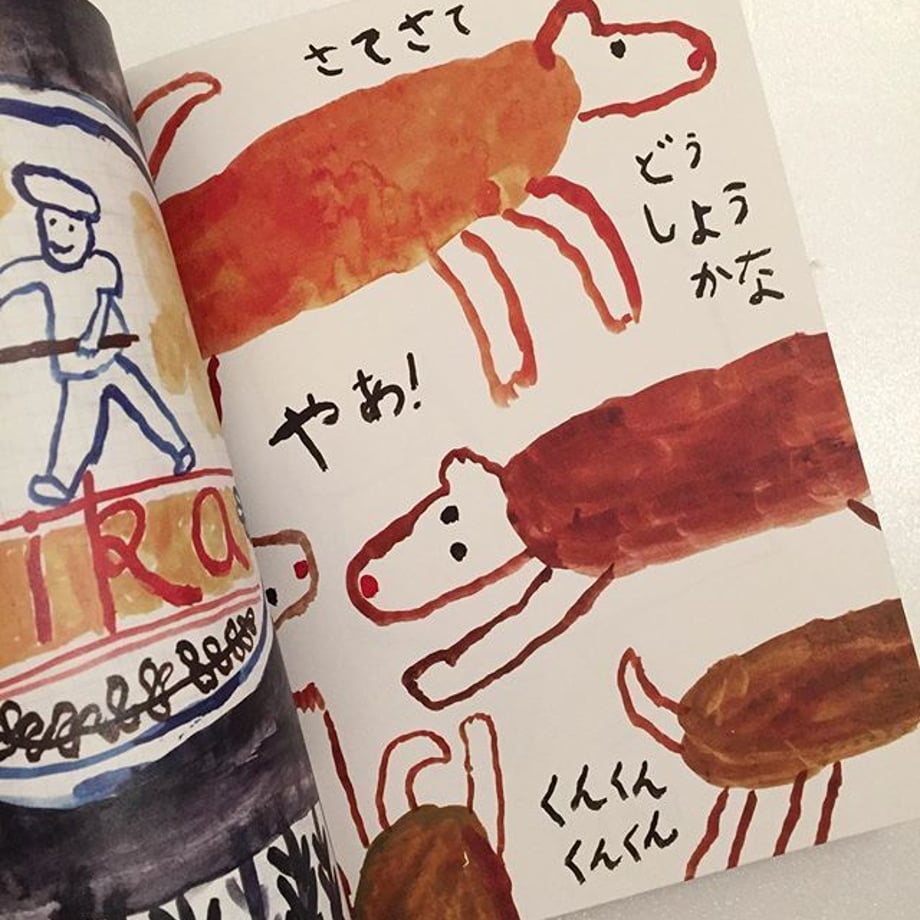 さてさて
どう
しよう
かな
やあ!
ika
くんくん
くんくん